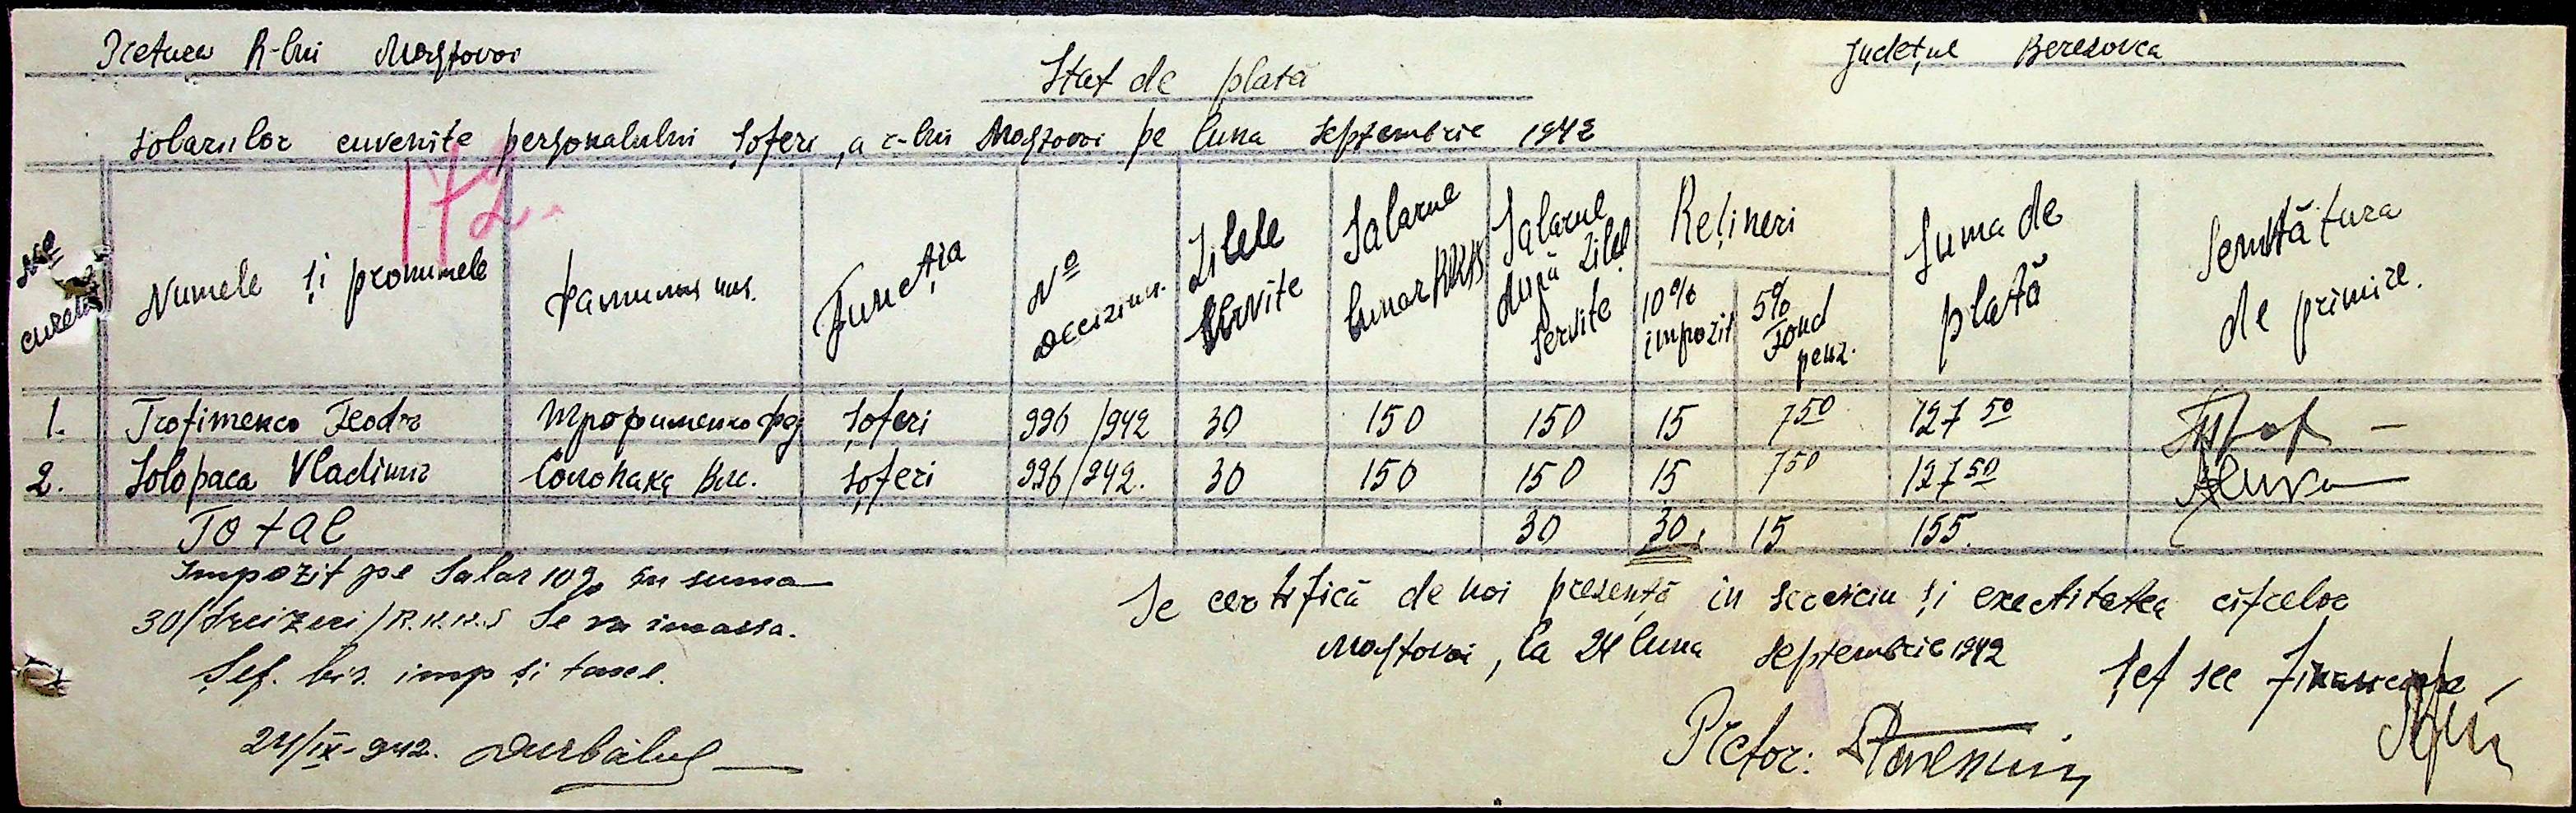 Pretura R-lui Mostovoi
Județul Berezovca
Stat de plată
Solariilor cuvenite personalului șoferi, a r-lui Mostovoi pe luna Septembrie 1942
172.
No curent
Numele și pronumele
Фамилия имя.
Funcția
No Deciziun.
Zilele servite
Salarul lunar RKKS
Salarul după zilel servite
Rețineri
10% impozit
5% Fond penz.
Suma de plată
Semnătura de primire.
1. Trofimenco Feodr Трофименко Фед șoferi 996/942 30 150 150 15 7 50 127 50
2. Solopaca Vladimir Солопака Вл. șoferi 996/942. 30 150 150 15 7 50 127 50
Total 30 30, 15 155.
Impozit pe Salar 10% în suma
30/treizeci/R.K.K.S Se va incassa.
Șef. bir. imp și taxe.
24/IX-942.
Se certifică de noi prezența in serviciu și exectitatea cifrelor
Mostovoi, la 24 luna Septembrie 1942
Șef sec Financiare
Pretor: